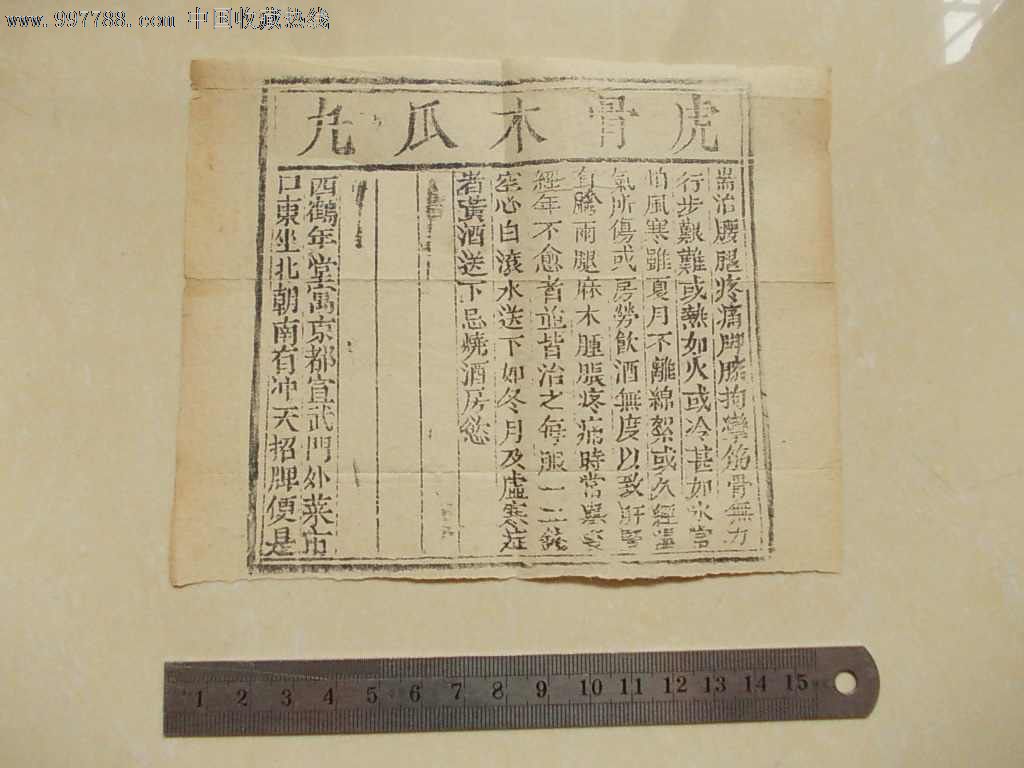 www.997788.com 中国收藏热线
虎骨木瓜丸
耑治腰腿疼痛脚膝拘攣筋骨無力
行步艱難或熱如火或冷甚如氷常
怕風寒雖夏月不離綿絮或久經濕
氣所傷或房勞飲酒無度以致肝腎
膝兩腿麻木腫脹疼痛時常舉發
經年不愈者並皆治之每服一二錢
空心白滚水送下如冬月及虛寒症
者黃酒送下忌燒酒房慾
西鶴年堂寓京都宣武門外菜市
口東坐北朝南有冲天招牌便是
1 2 3 4 5 6 7 8 9 10 11 12 13 14 15